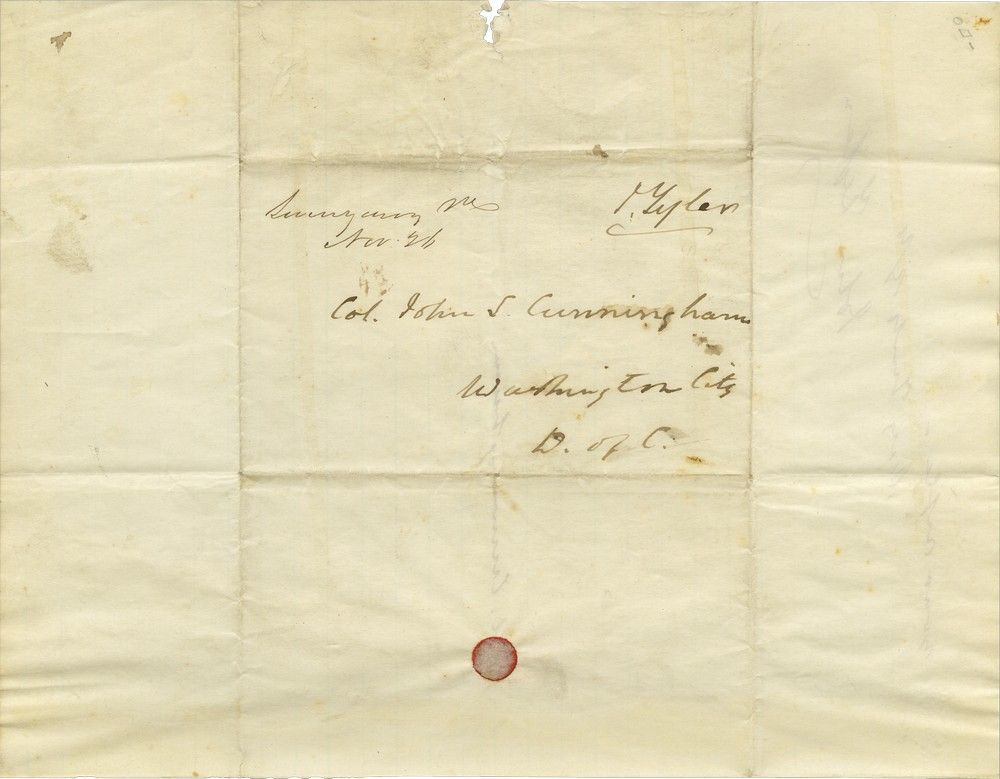 Nov. 26
J. Tyler
Col. John S. Cunningham
Washington City
D. of C.